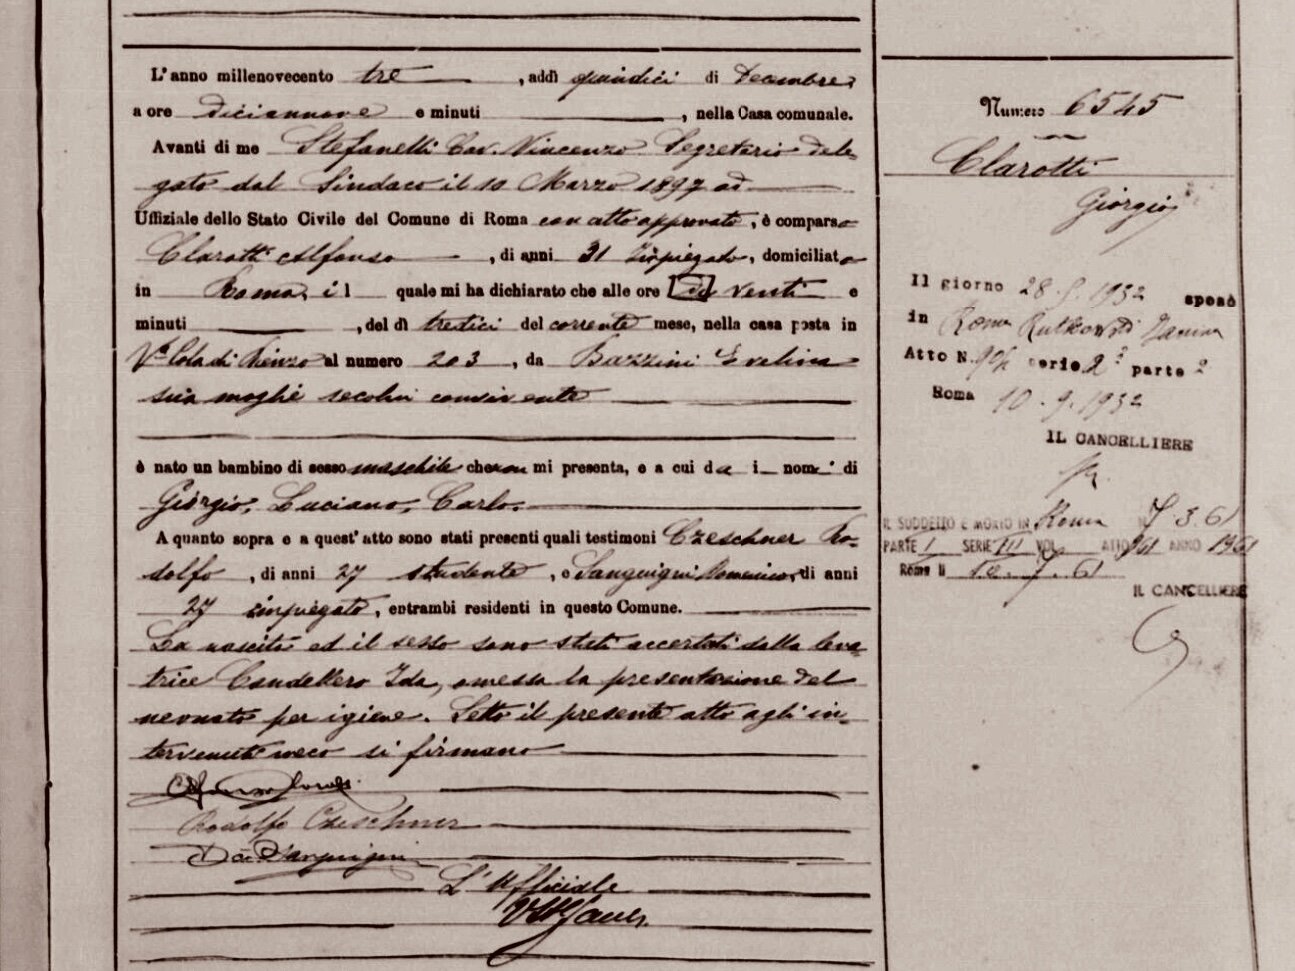 L'anno millenovecento tre, addì quindici di Decembre,
a ore diciannove e minuti , nella Casa comunale.
Avanti di me Stefanelli Cav. Vincenzo Segretario dele-
gato dal Sindaco il 10 Marzo 1897 ad
Uffiziale dello Stato Civile del Comune di Roma con atto approvato, è comparso
Clarotti Alfonso, di anni 31 Impiegato, domiciliato
in Roma, il quale mi ha dichiarato che alle ore venti e
minuti , del dì tredici del corrente mese, nella casa posta in
Va Cola di Rienzo al numero 203, da Bazzini Evelina
sua moglie secolui convivente
è nato un bambino di sesso maschile che non mi presenta, e a cui da i nomi di
Giorgio, Luciano, Carlo.
A quanto sopra e a quest'atto sono stati presenti quali testimoni Czeschner Ro-
dolfo, di anni 27 studente, e Sanguigni Domenico, di anni
27 impiegato, entrambi residenti in questo Comune.
La nascita ed il sesso sono stati accertati dalla leva-
trice Candellero Ida, omessa la presentazione del
neonato per igiene. Letto il presente atto agli in-
tervenuti meco si firmano
Rodolfo Czeschner
Sanguigni
L'Ufficiale
Numero 6545
Clarotti
Giorgio
Il giorno 28 1932 sposò
in Roma Rutkowski Janina
Atto N. serie 2ª parte 2
Roma 10-9-1932
IL CANCELLIERE
IL SUDDETTO È MORTO IN Roma IL 7.3.61
PARTE I SERIE III VOL ATTO 961 ANNO 1961
Roma li 10.7.61
IL CANCELLIERE